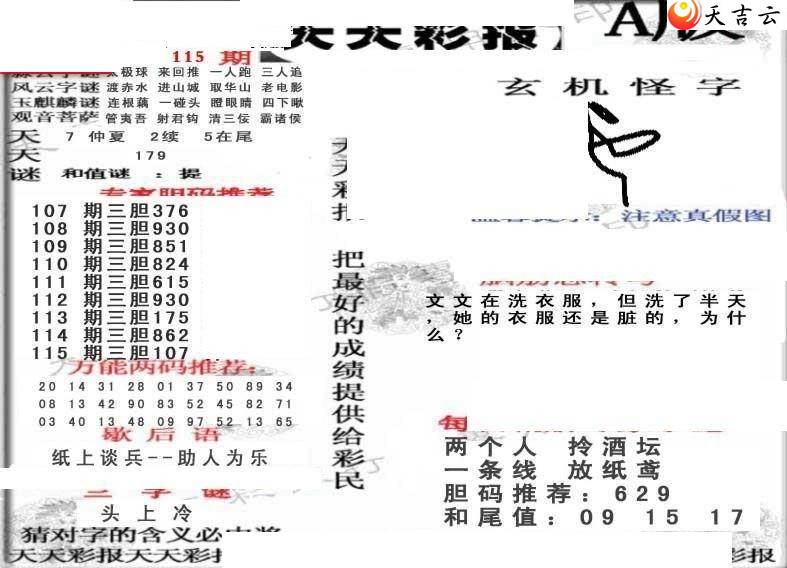 天天彩报
A版
天吉云
115 期
太极球 来回推 一人跑 三人追
风云字谜 渡赤水 进山城 取华山 老电影
玉麒麟谜 连根藕 一碰头 瞪眼睛 四下瞅
观音菩萨 管夷吾 射君钩 清三佞 霸诸侯
天 7 仲夏 2续 5在尾
天 179
谜 和值谜 ：提
专家胆码推荐
107 期三胆376
108 期三胆930
109 期三胆851
110 期三胆824
111 期三胆615
112 期三胆930
113 期三胆175
114 期三胆862
115 期三胆107
万能两码推荐：
20 14 31 28 01 37 50 89 34
08 13 42 90 83 52 45 82 71
03 40 13 48 09 97 52 13 65
歇后语
纸上谈兵--助人为乐
三字谜
头上冷
猜对字的含义必中奖
天天彩报天天彩报
天天彩报
把最好的成绩提供给彩民
玄机怪字
温馨提示：注意真假图
脑筋急转弯
文文在洗衣服，但洗了半天
，她的衣服还是脏的，为什
么？
每
两个人 拎酒坛
一条线 放纸鸢
胆码推荐：629
和尾值：09 15 17